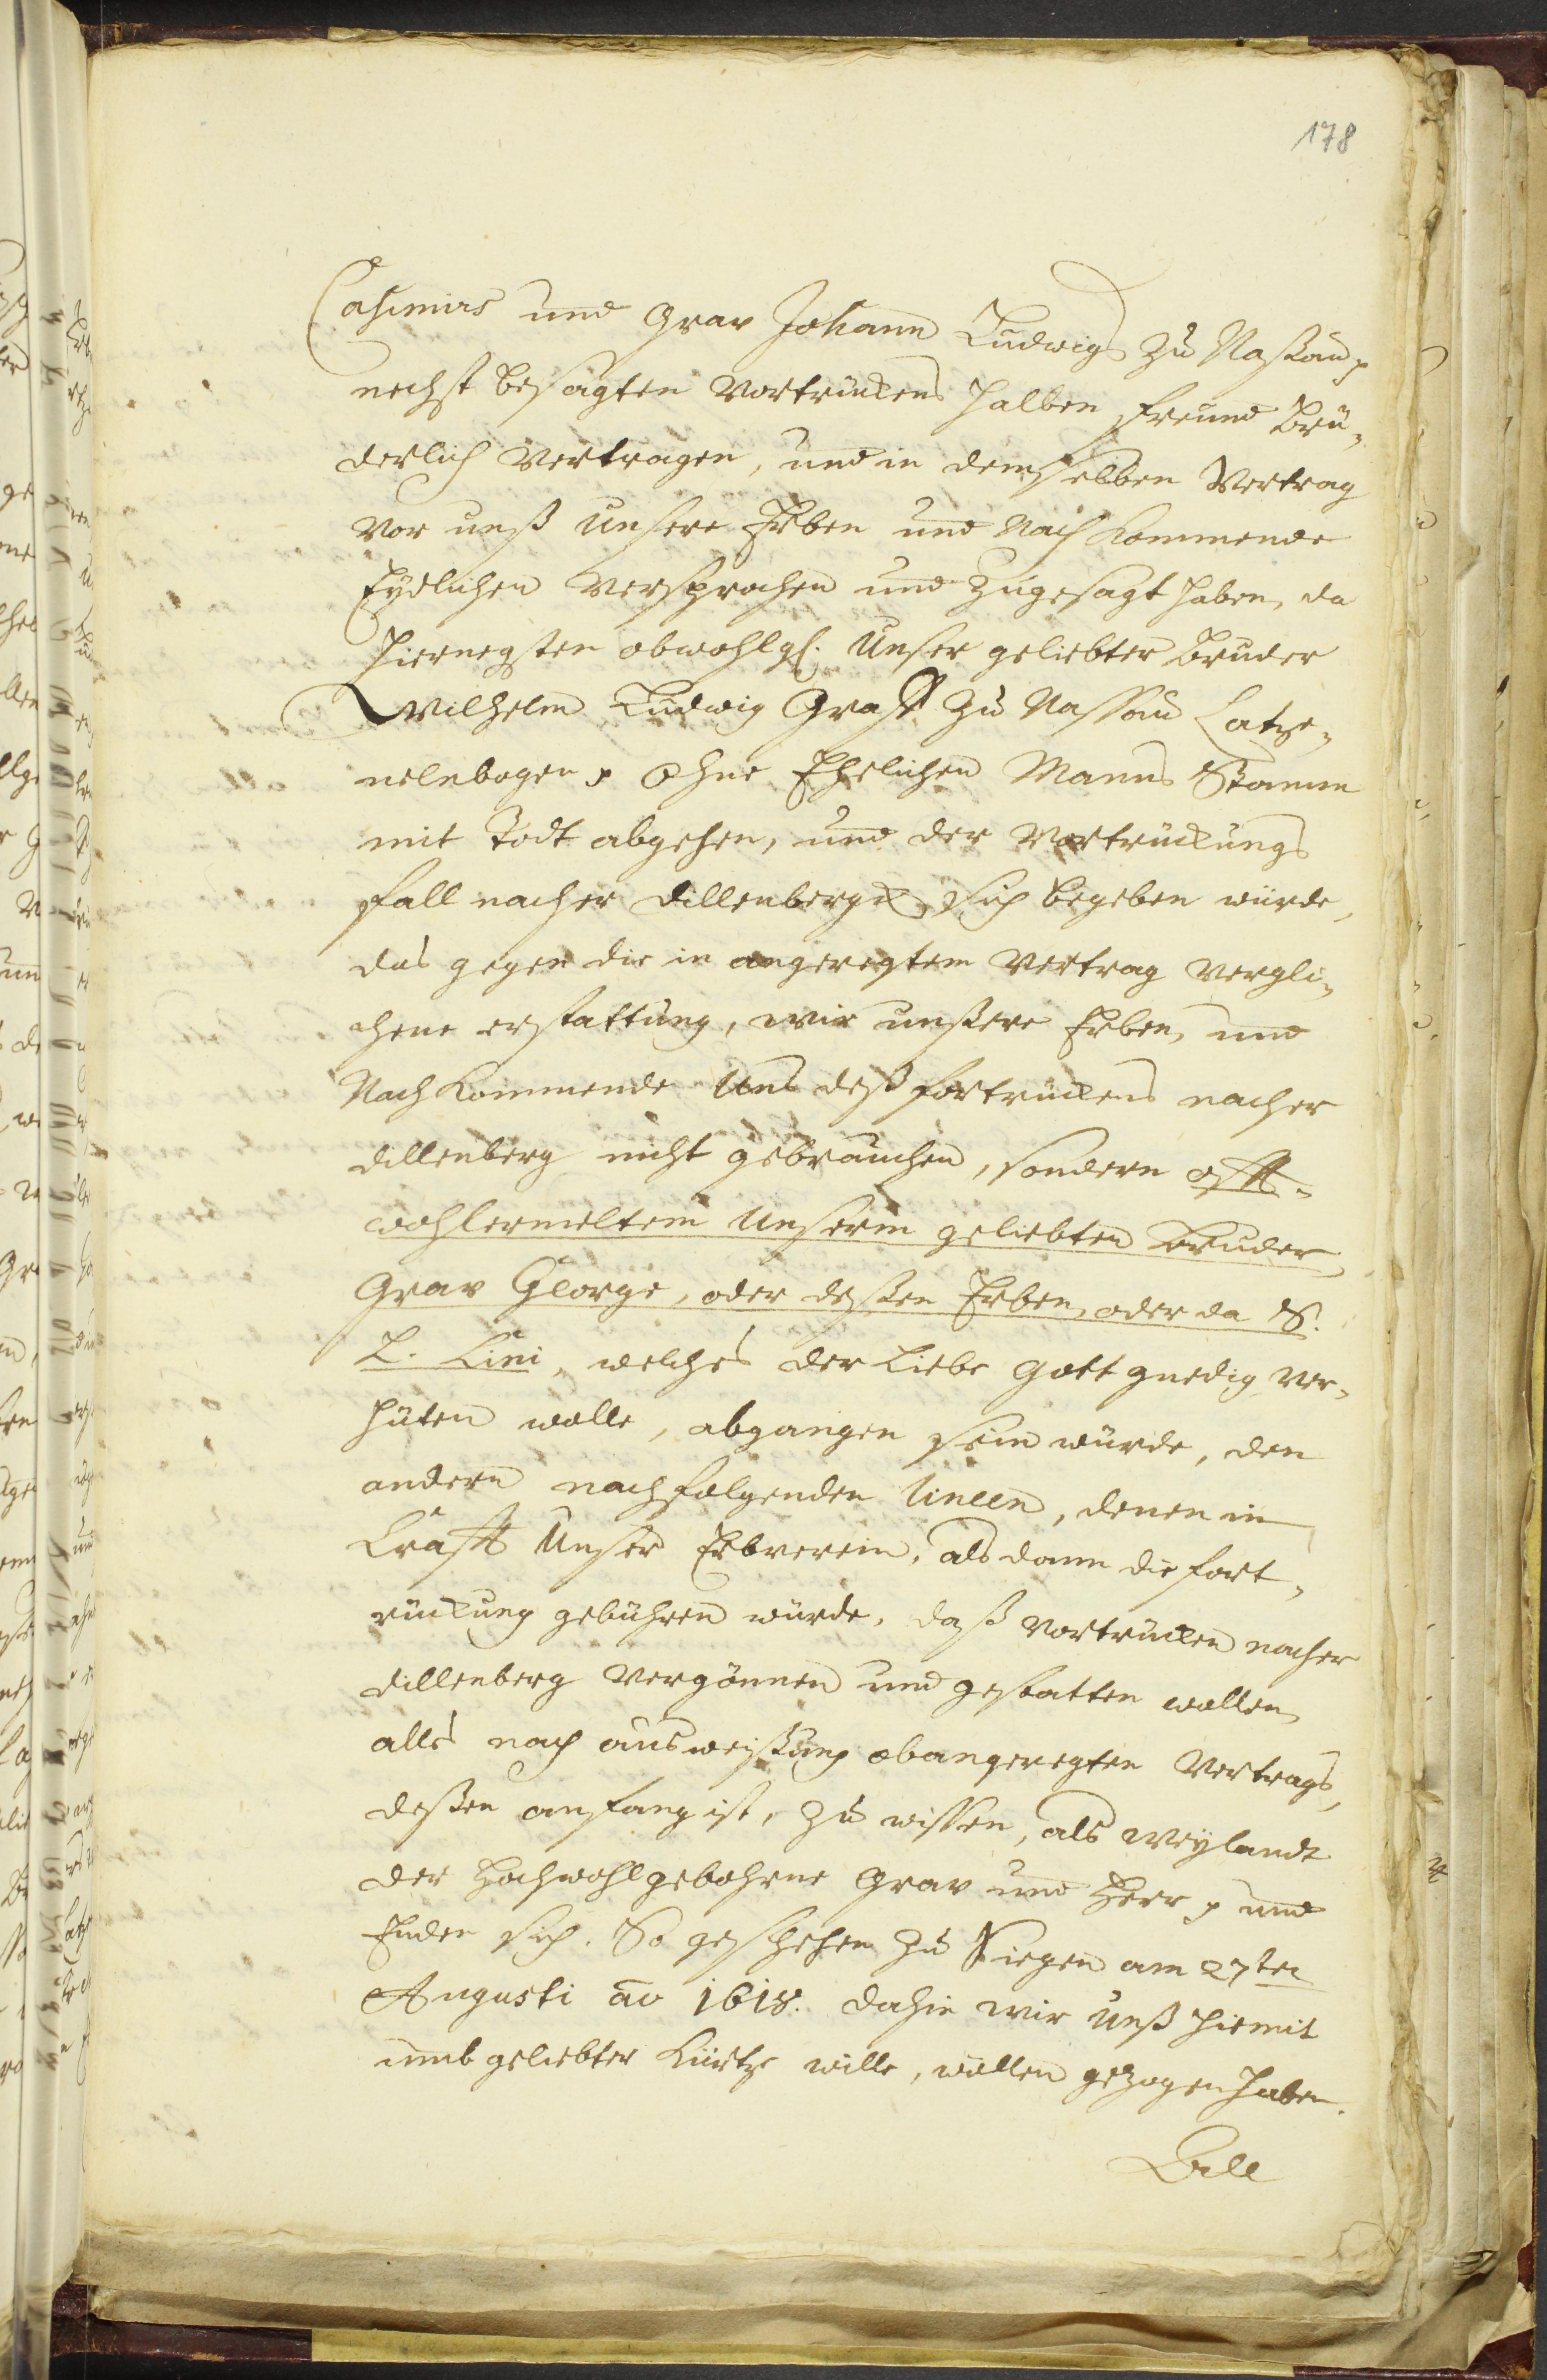 178
Casimirs und Grav Johann Ludwigs zu Naßau p
nechst besagten Vortruckens halben freund Brü„
derlich Vertragen, und in demselben Vertrag
vor unß unsere Erben und Nach Kommende
Eydlichen versprochen und zugesagt haben, da
hiernegsten obwohlgl. Unser geliebter Bruder
Wilhelm Ludwig Graff zu Nassau Catze„
nelnbogen p ohne Ehelichen Manns Stamm
mit Todt abgehen, und der Vortruckungs
fall nacher Dillenberg sich begeben würde,
das gegen die in angeregtem Vertrag vergli„
chene erstattung, wir unßere Erben, und
Nach Kommende Uns deß fortruckens nacher
Dillenberg nicht gebrauchen, sondern offt„
wohlermeltem Unserm geliebten Bruder
Grav George, oder deßen Erben, oder da S.
L. Lini, welches der Liebe Gott gnedig ver„
hüten wolle, abgangen sein würde, den
andern nachfolgenden Lineen, denen in
Crafft Unser Erbverein, als dann die fort„
rückung gebühren würde, daß Vortrucken nacher
Dillenberg vergönnen und gestatten wollen,
alles nach ausweißung obangeregten Vertrags,
deßen anfang ist, Zu wissen, als Weylandt
der Hochwohlgebohrne Grav und Herr p und
Enden sich. So geschehen zu Siegen am 27ten
Augusti ao 1618. dahin wir unß hiemit
umb geliebter Kürtze wille, wollen gezogen haben.